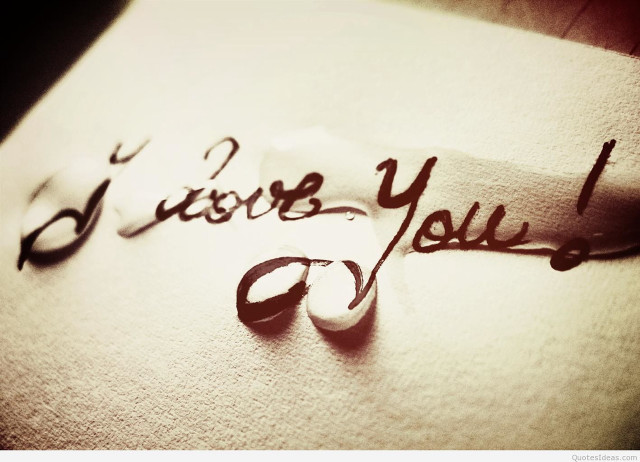 I Love You!
QuotesIdeas.com